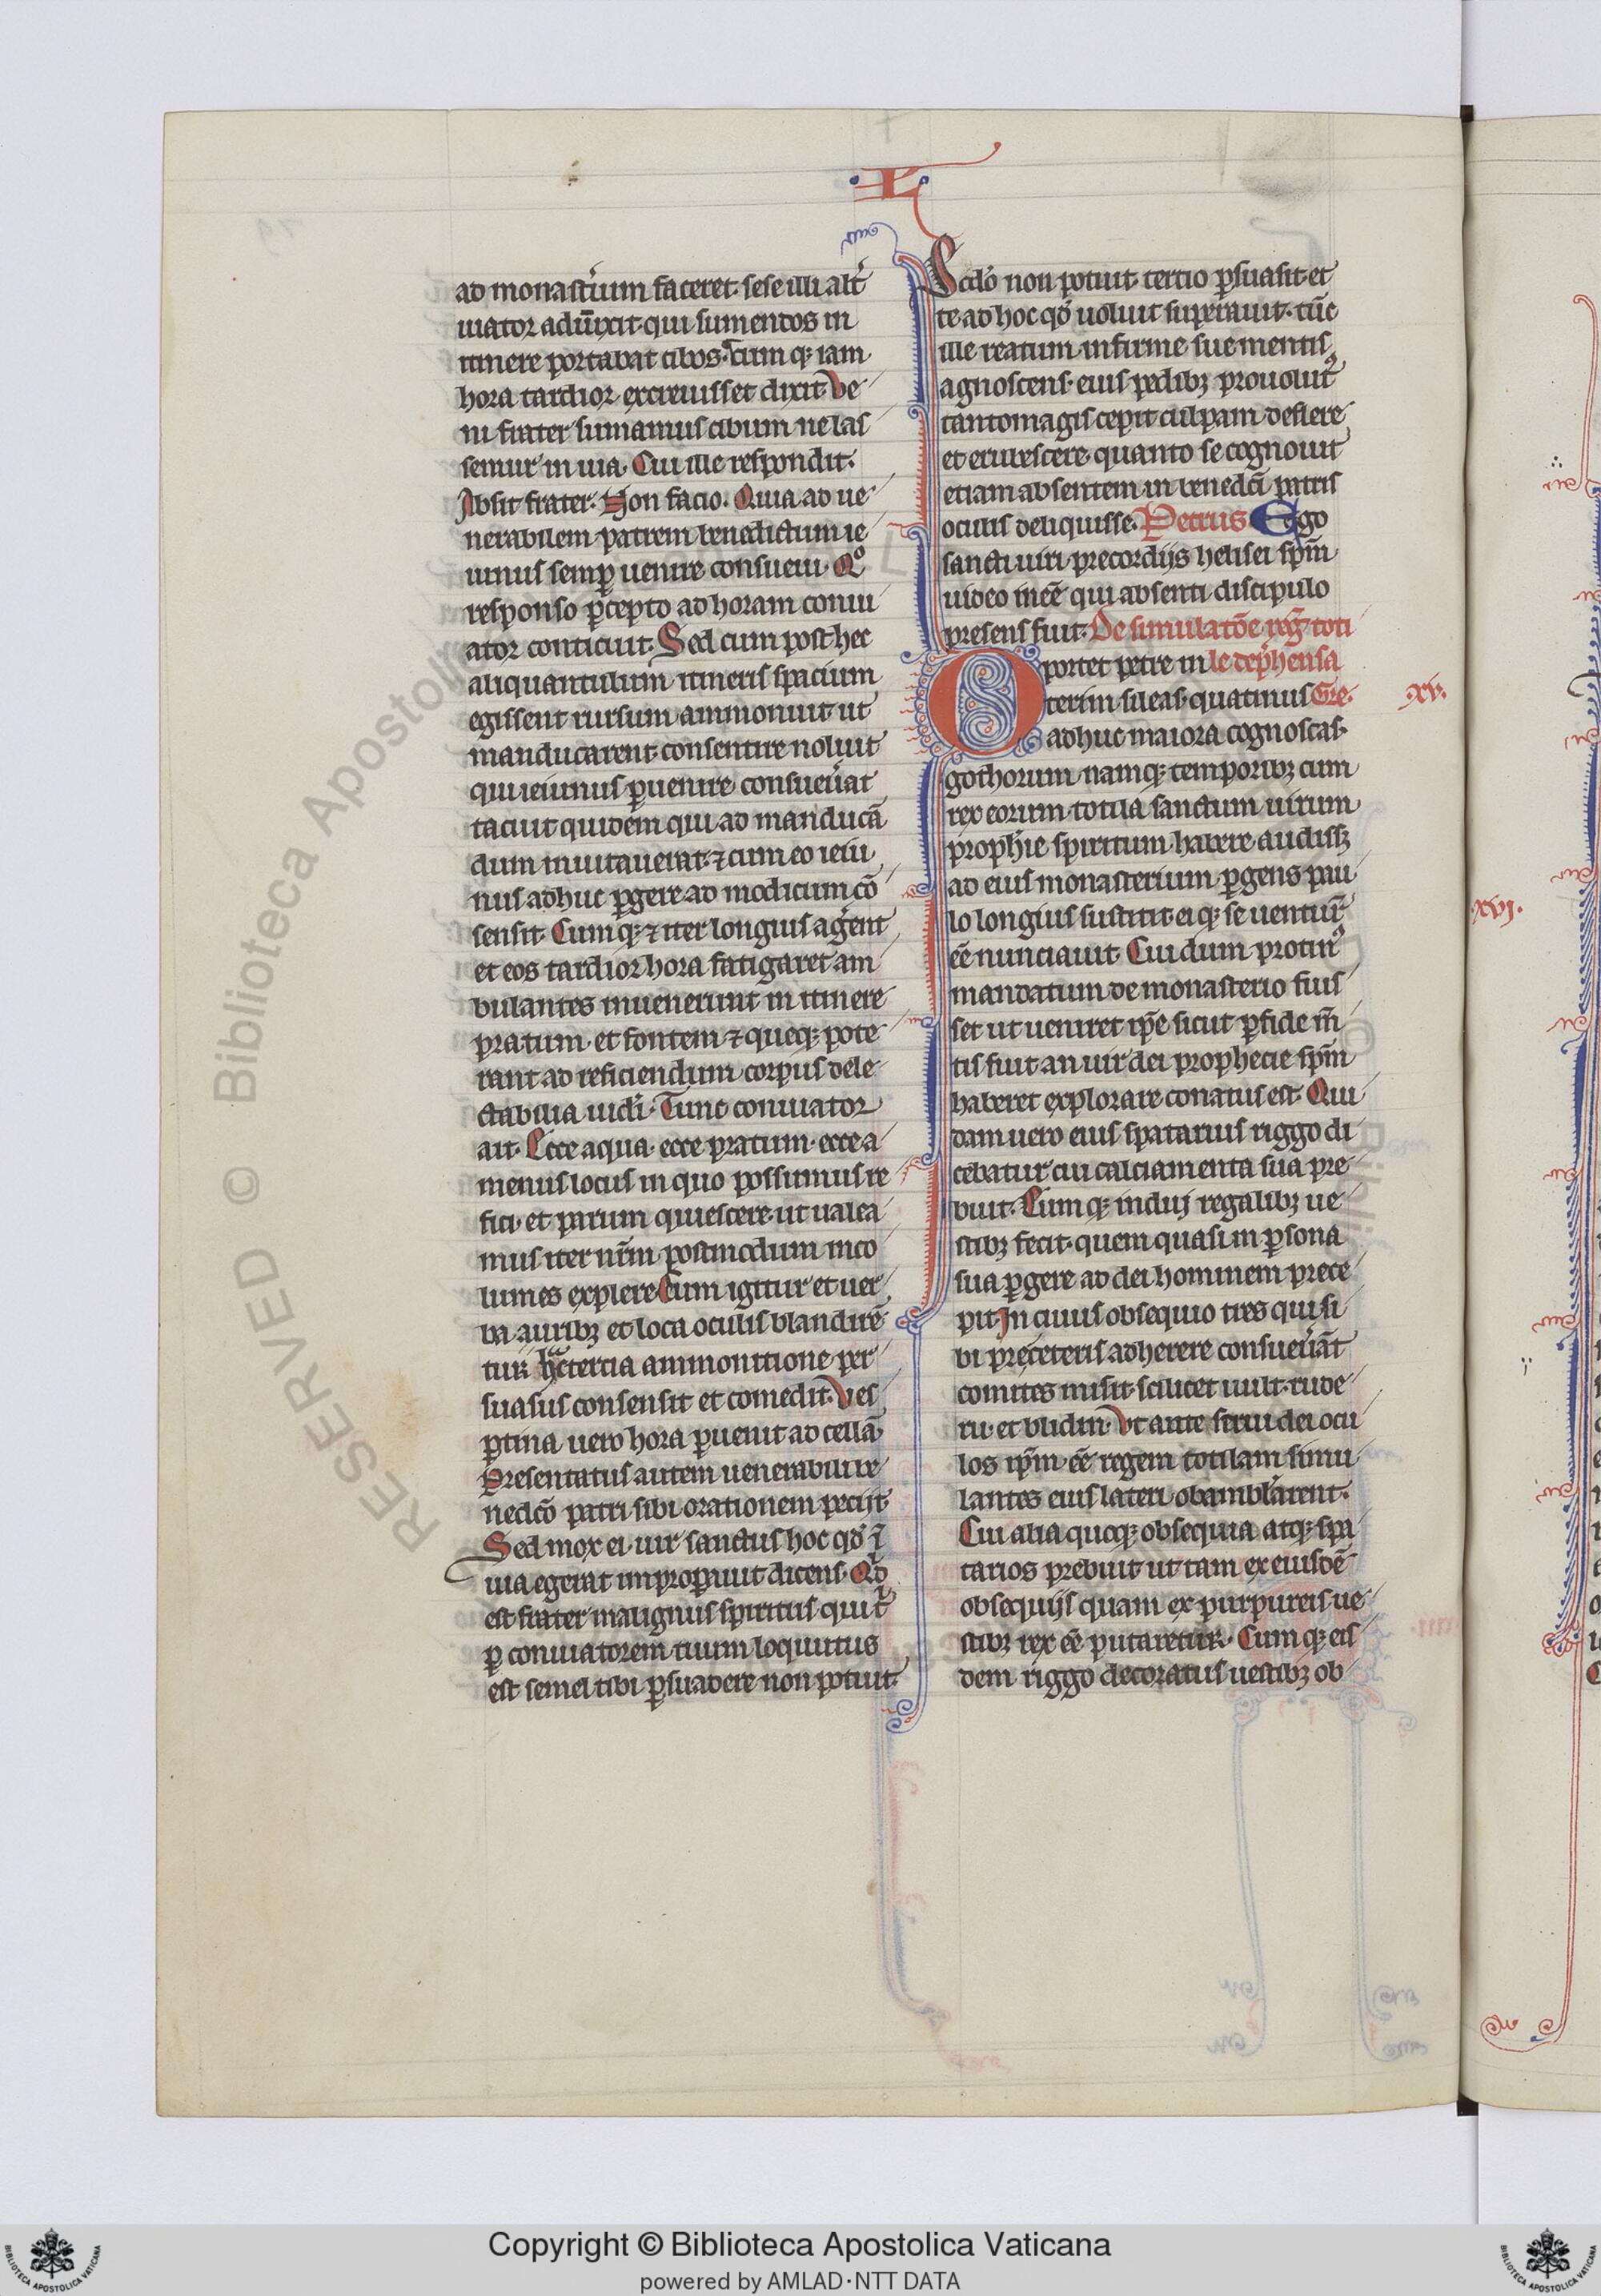 L
ad monastˀium faceret· sese illi altˀ
uiator adūxit· qui sumendos in
itinere portabat cibos. Cum q; iam
hora tardior excreuisset dixit. Ve
ni frater sumamus cibum ne las
semur in uia. Cui ille respondit.
Absit frater. Non facio. Quia ad ue
nerabilem patrem benedictum ie
iunus semꝑ uenire consueui. Qͦ
responso ꝑcepto ad horam conui
ator conticuit. Sed cum post hec
aliquantulum itineris spacium
egissent rursum ammonuit ut
manducarent· consentire noluit
qui ieiunus ꝑuenire consueuˀat
tacuit quidem qui ad manducā
dum inuitauerat· ⁊ cum eo ieiu
nus adhuc ꝑgere ad modicum cō
sensit. Cum q; ⁊ iter longius agˀent
et eos tardior hora fatigaret am
bulantes inuenerunt in itinere
pratum· et fontem ⁊ queq; pote
rant ad reficiendum corpus dele
ctabilia uidˀi. Tunc conuiator
ait. Ecce aqua· ecce pratum· ecce a
menus locus in quo possumus re
fici· et parum quiescere· ut ualea
mus iter nr̄m postmodum inco
lumes explere. Cum igitur et uer
ba auribꝫ et loca oculis blandirē
tur hͣc tertia ammonitione per
suasus consensit et comedit. Ves
ꝑtina uero hora ꝑuenit ad cellā
Presentatus autem uenerabili be
nedc̄o patri sibi orationem peciit
Sed mox ei uir sanctus hoc qd̄ ī
uia egerat improꝑauit dicens. Qͥd
est frater malignus spiritus qui tͥ
ꝑ conuiatorem tuum loquutus
est semel tibi ꝑsuadere non potuit·
Scd̄o non potuit· tertio ꝑsuasit· et
te ad hoc qd̄ uoluit superauit· tūc
ille reatum infirme sue mentis
agnoscens· eius pedibꝫ prouolutꝰ
tantomagis cepit culpam deflere
et erubescere quanto se cognouit
etiam absentem in benedc̄i patris
oculis deliquisse. Petrus Ego
sancti uiri precordijs helisei sp̄m
uideo inēē qui absenti discipulo
presens fuit. De simulatōe reḡ toti
portet petre in le dep̄hensa
O
terim sileas· quatinus Gre.
.xv.
adhuc maiora cognoscas·
gothorum namq; temporibꝫ cum
rex eorum totila sanctum uirum
prophˀie spiritum habere audissꝫ
ad eius monasterium ꝑgens pau
lo longius sustitit· ei q; se uentur̄
ēē nunciauit. Cui dum protinꝰ
mandatum de monasterio fuis
set ut ueniret ip̄e sicut ꝑfide m̄
tis fuit an uir dei prophecie sp̄m
haberet explorare conatus est. Qui
dam uero eius spatarius riggo di
cebatur cui calciamenta sua pre
buit. Eum q; indui regalibꝫ ue
stibꝫ fecit· quem quasi in ꝑsona
sua ꝑgere ad dei hominem prece
pit. In cuius obsequio tres qui si
bi pre ceteris adherere consueuˀāt
comites misit· scilicet uult· rude
ri· et blidin. Vt ante serui dei ocu
los ip̄m ēē regem totilam simu
lantes eius lateri obamblˀarent·
Cui alia quoq; obsequia atq; spa
tarios prebuit ut tam ex eiusdē
obsequijs quam ex purpureis ue
stibꝫ rex ēē putaretur. Cum q; eis
dem riggo decoratus uestibꝫ ob
.xvj.
RESERVED © Biblioteca Apostolica
Copyright © Biblioteca Apostolica Vaticana
powered by AMLAD·NTT DATA
BIBLIOTECA APOSTOLICA VATICANA
BIBLIOTECA APOSTOLICA VATICANA